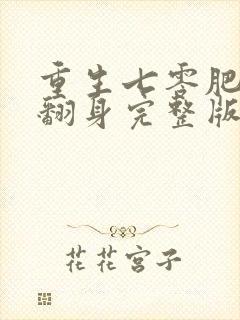 重生七零肥
翻身完整版
花花宫子